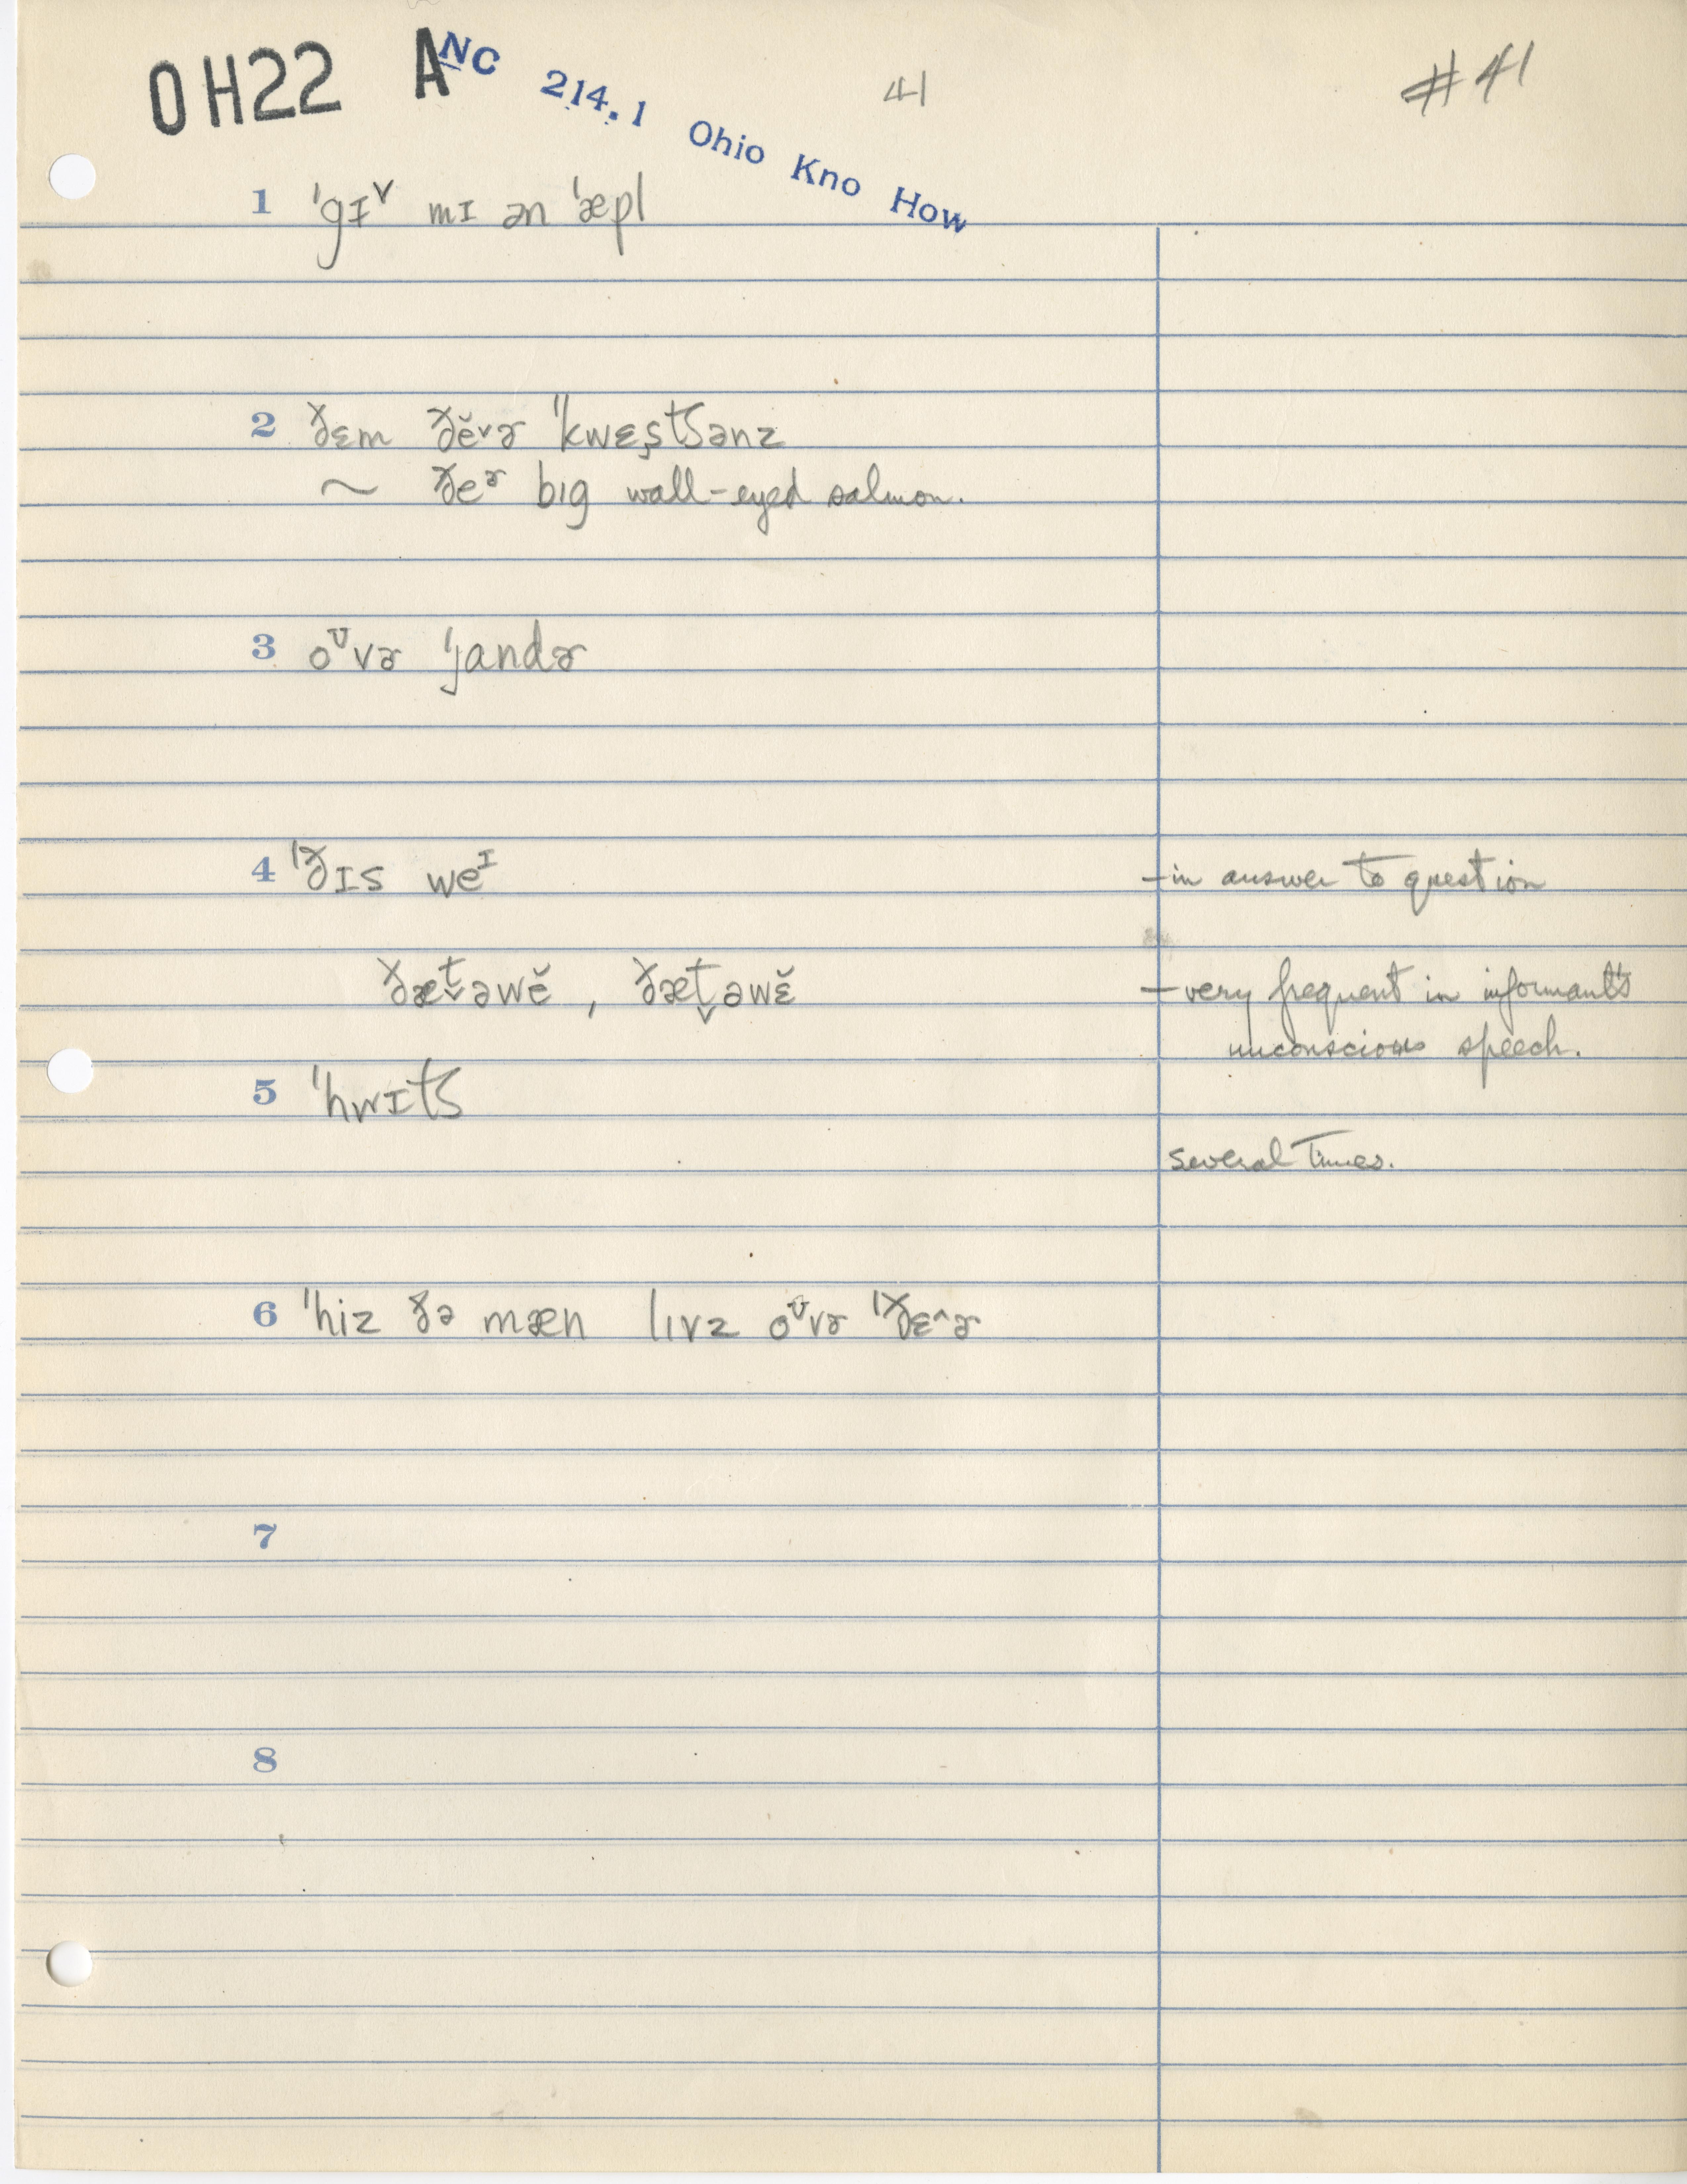 OH22 A NC 214.1 Ohio Kno How 41 #41
1 ˈgɪᵛ mɪ ən ˈæpl
2 ðɛm ðĕ˅ɚ ˈˈkwɛs̬tʃənz
~ ðeɚ bɪg wall-eyed salmon.
3 oᶷvɚ ˈjandɚ
4 ˈðɪs weᴵ -in answer to question
ðæt̬əwĕ , ðæt̬əwɛ̆ -very frequent in informant's
unconscious speech.
5 ˈhwɪtʃ
several times.
6 ˈhiz ðə mæn lɪvz oᶷvɚ ˈðɛ^ɚ
7
8